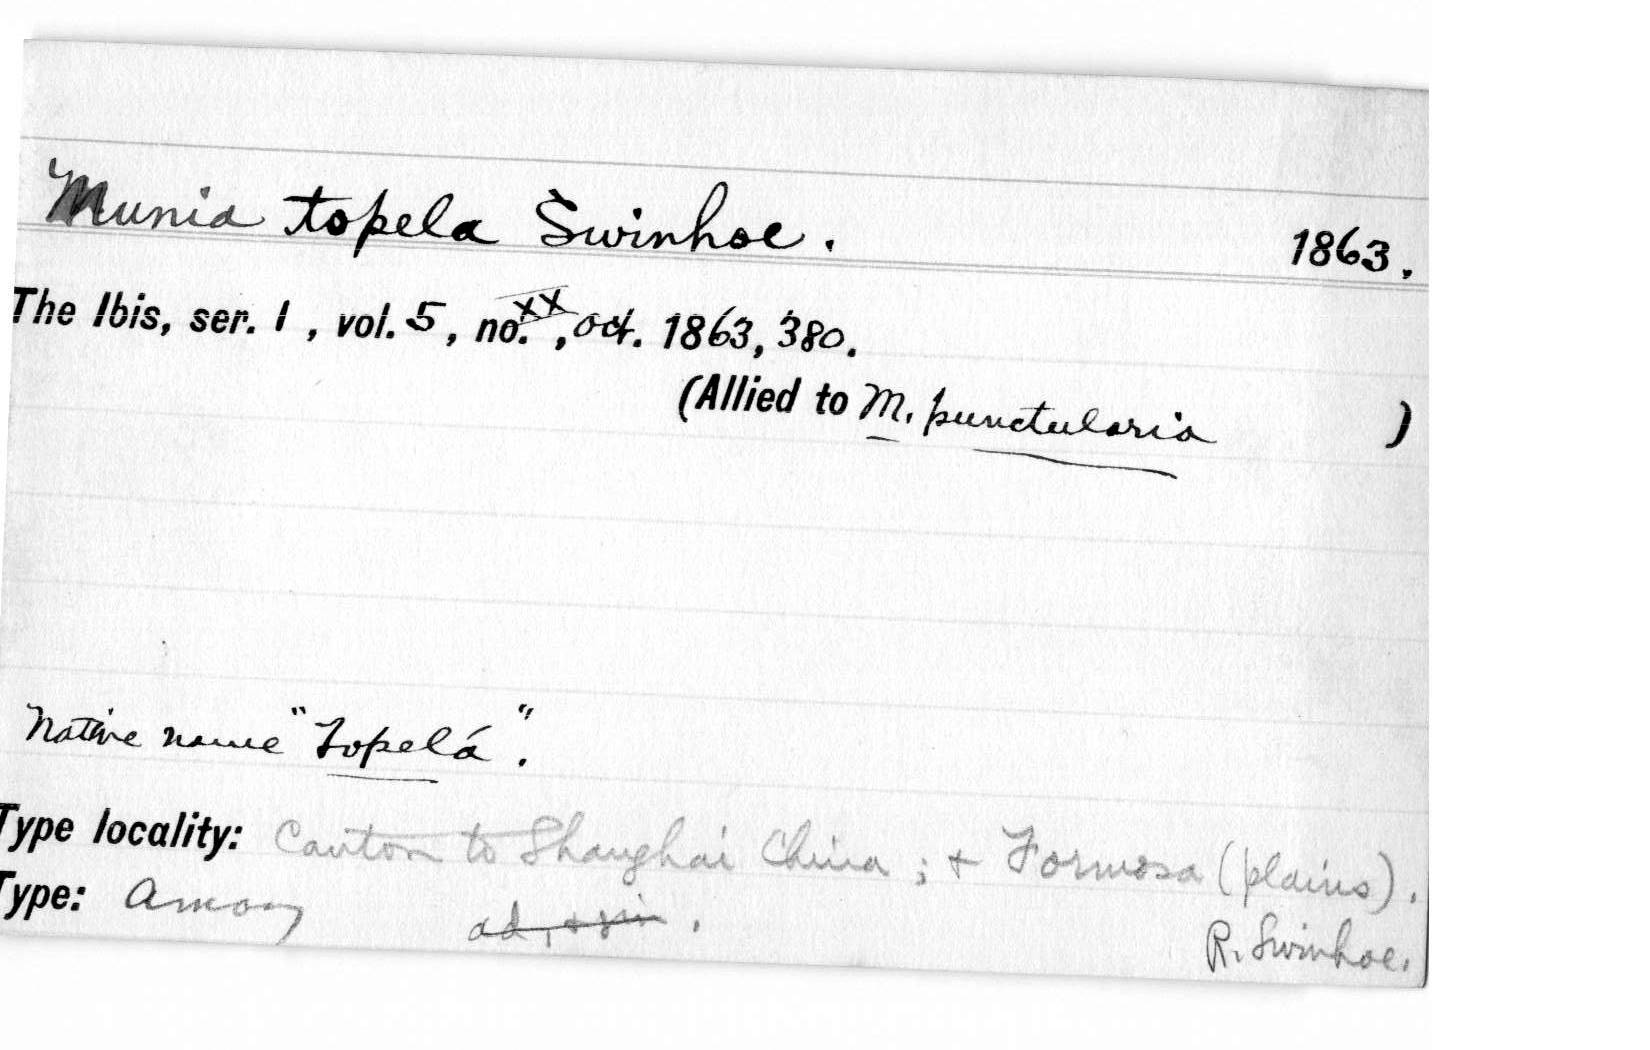 Munia topela Swinhoe. 1863.
The Ibis, ser. 1, vol. 5, no. XX, Oct. 1863, 380.
(Allied to M. punctularia )
Native name "Topelá".
Type locality: Canton to Shanghai China; + Formosa (plains).
Type: Amoy ad, + .
R. Swinhoe.